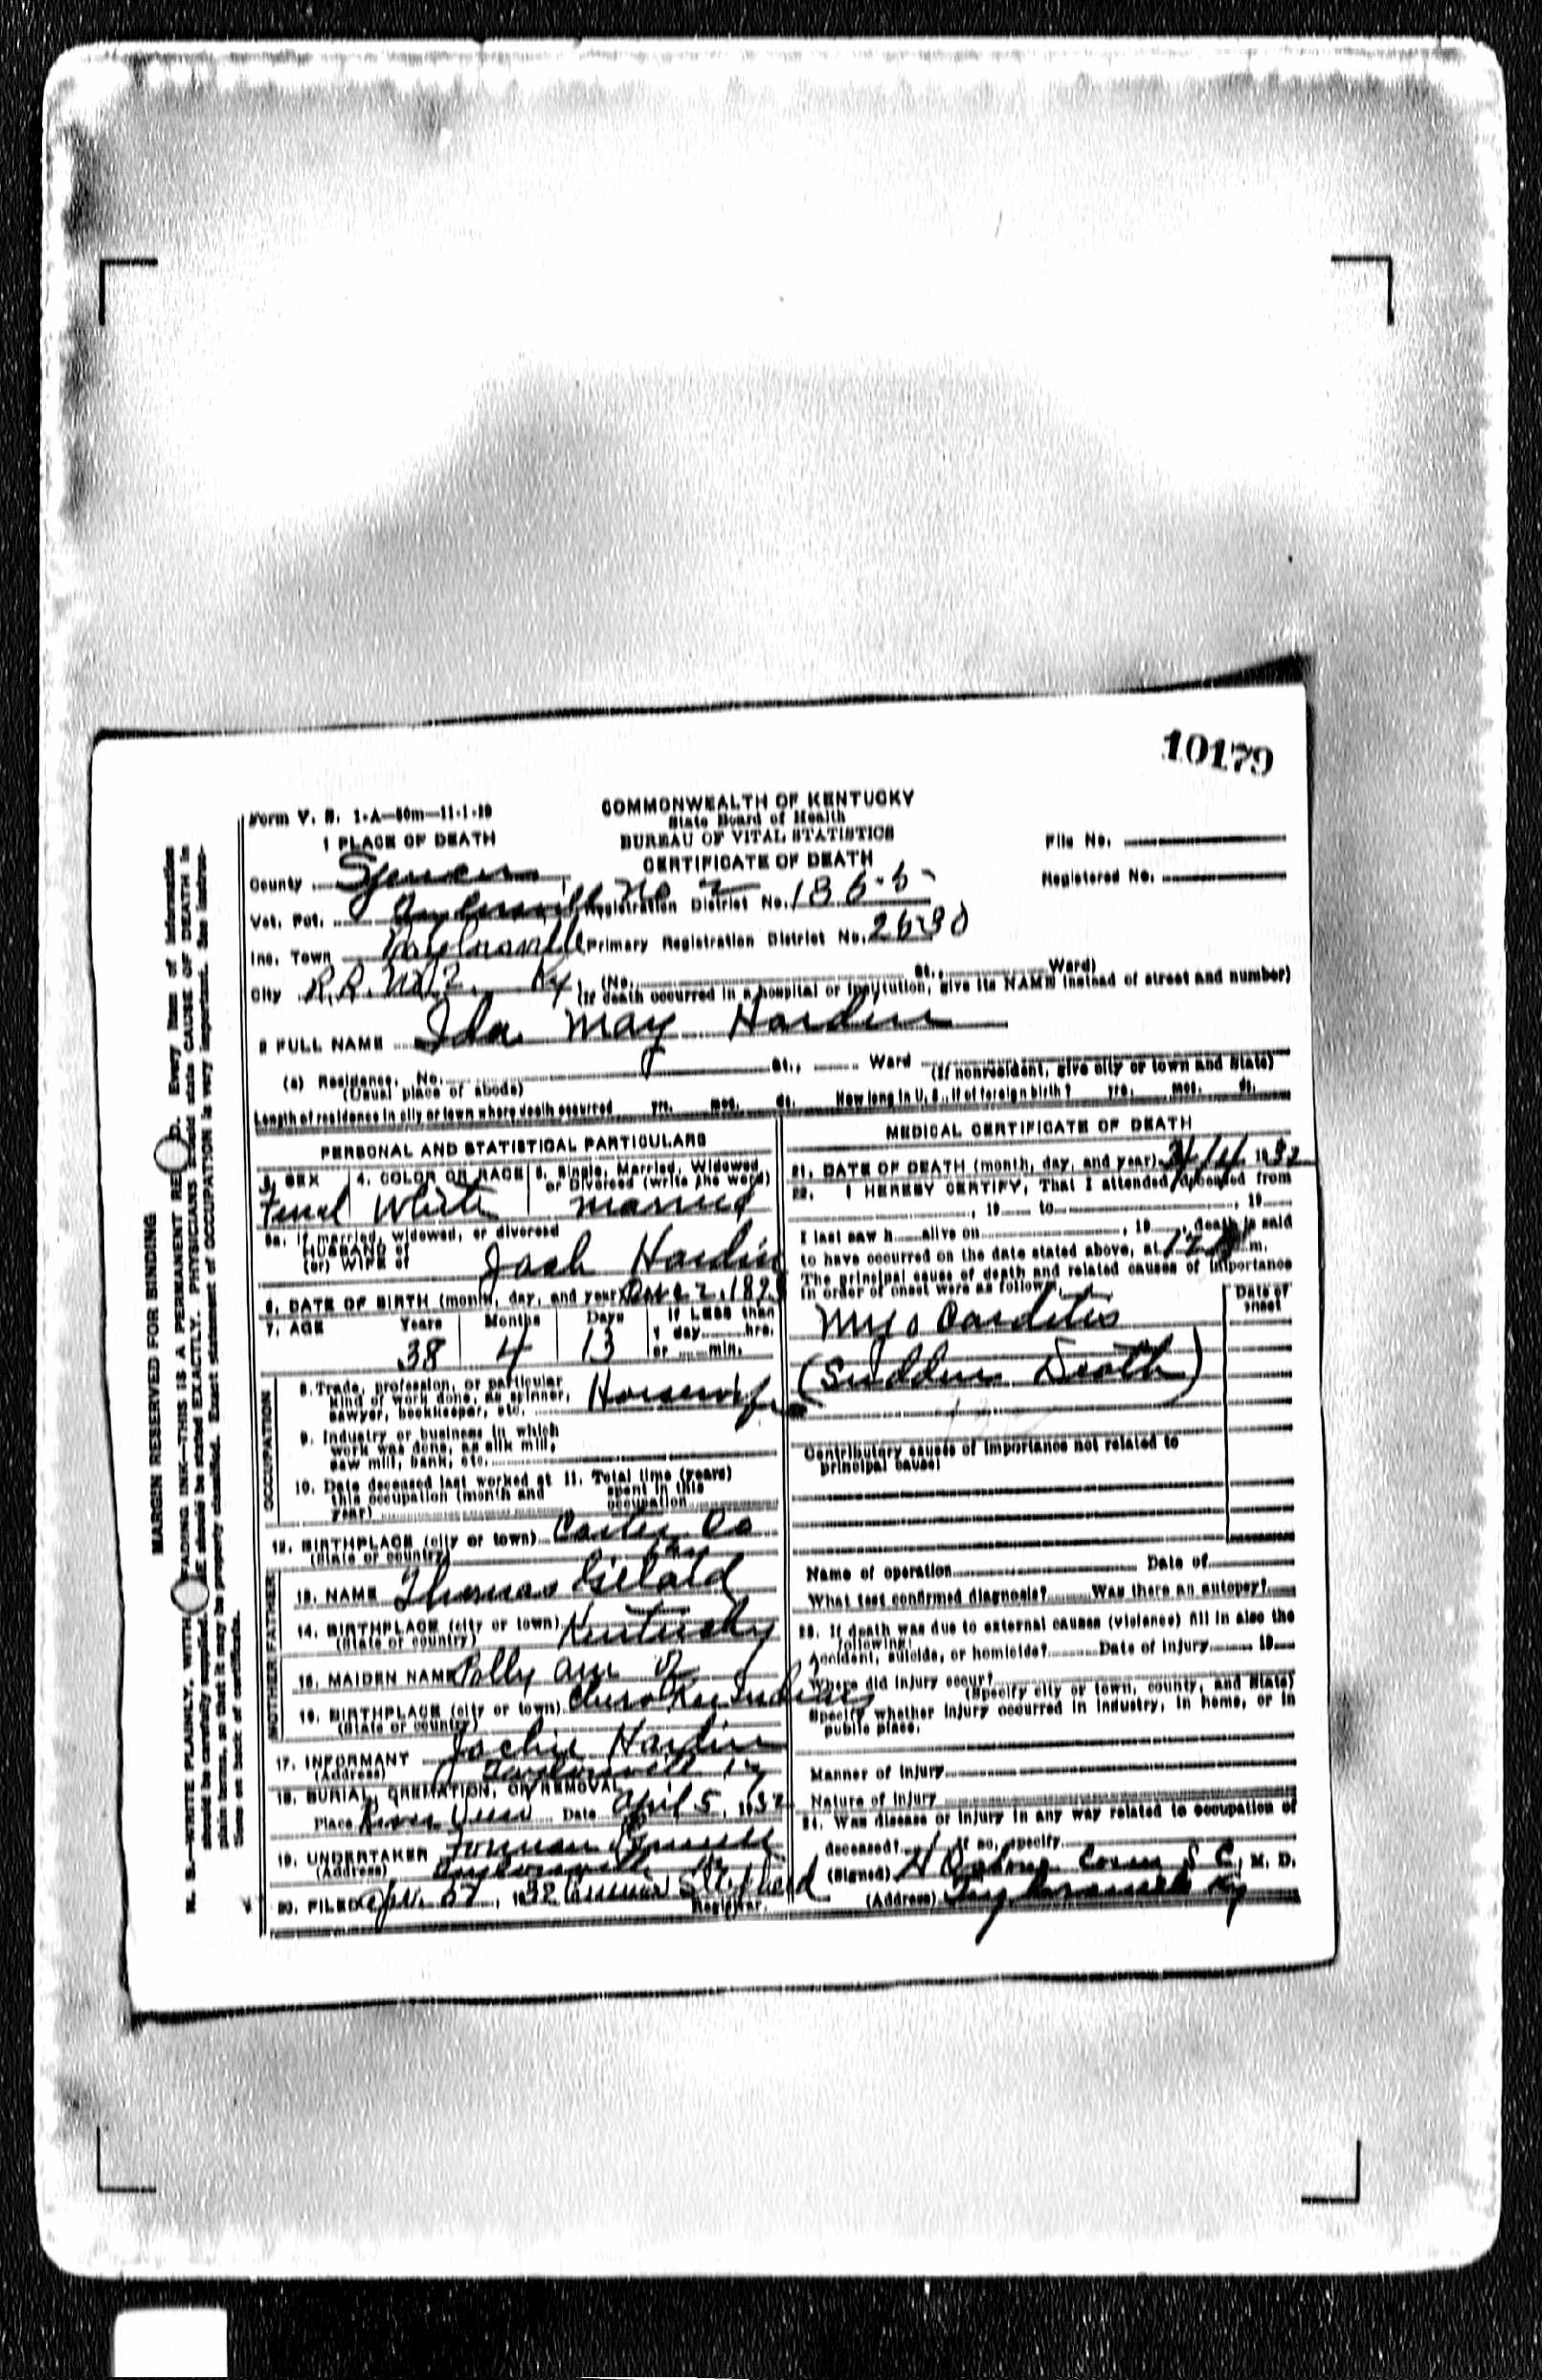 10179
Form V. S. 1-A—50m—11-1-
COMMONWEALTH OF KENTUCKY
State Board of Health
BUREAU OF VITAL STATISTICS
CERTIFICATE OF DEATH
File No.
Registered No.
1 PLACE OF DEATH
County Spencer
Vot. Pct. Taylorsville No 2 Registration District No.
Inc. Town Taylorsville Primary Registration District No.
City R.R. No. 2. Ky (No. St., Ward)
(If death occurred in a hospital or institution, give its NAME instead of street and number)
2 FULL NAME Ida May Hardin
(a) Residence. No. St., Ward (If nonresident, give city or town and State)
(Usual place of abode)
Length of residence in city or town where death occurred yrs. mos. ds. How long in U. S., if of foreign birth? yrs. mos. ds.
PERSONAL AND STATISTICAL PARTICULARS
3. SEX 4. COLOR OR RACE 5. Single, Married, Widowed, or Divorced (write the word)
Femal White Married
5a. If married, widowed, or divorced
HUSBAND of
(or) WIFE of Jack Hardin
6. DATE OF BIRTH (month, day, and year) 2, 189
7. AGE Years Months Days If LESS than
1 day hrs.
38 4 13 or min.
OCCUPATION
8. Trade, profession, or particular
kind of work done, as spinner, Housewife
sawyer, bookkeeper, etc.
9. Industry or business in which
work was done, as silk mill,
saw mill, bank, etc.
10. Date deceased last worked at 11. Total time (years)
this occupation (month and spent in this
year) occupation
12. BIRTHPLACE (city or town) Carter Co
(State or country) Ky
FATHER
13. NAME Thomas
14. BIRTHPLACE (city or town) Kentucky
(State or country)
MOTHER
15. MAIDEN NAME Polly Ann
16. BIRTHPLACE (city or town) Cherokee Indian
(State or country)
17. INFORMANT Jackie Hardin
(Address) Taylorsville Ky
18. BURIAL, CREMATION, OR REMOVAL
Place River View Date April 5, 1932
19. UNDERTAKER
(Address) Taylorsville Ky
20. FILED Apr. 1932 Shepherd
Registrar.
MEDICAL CERTIFICATE OF DEATH
21. DATE OF DEATH (month, day, and year) 4/4 1932
22. I HEREBY CERTIFY, That I attended deceased from
, 19 to , 19
I last saw h alive on , 19 , death is said
to have occurred on the date stated above, at 12 m.
The principal cause of death and related causes of importance
in order of onset were as follows:
Date of onset
Myo Carditis
(Sudden Death)
Contributory causes of importance not related to
principal cause:
Name of operation Date of
What test confirmed diagnosis? Was there an autopsy?
23. If death was due to external causes (violence) fill in also the
following:
Accident, suicide, or homicide? Date of injury 19
Where did injury occur?
(Specify city or town, county, and State)
Specify whether injury occurred in industry, in home, or in
public place.
Manner of injury
Nature of injury
24. Was disease or injury in any way related to occupation of
deceased? If so, specify
(Signed) M. D.
(Address) Taylorsville Ky
MARGIN RESERVED FOR BINDING
N. B.—WRITE PLAINLY, WITH FADING INK—THIS IS A PERMANENT RE D. Every item of information
should be carefully supplied. AGE should be stated EXACTLY. PHYSICIANS should state CAUSE OF DEATH in
plain terms, so that it may be properly classified. Exact statement of OCCUPATION is very important. See instruc-
tions on back of certificate.